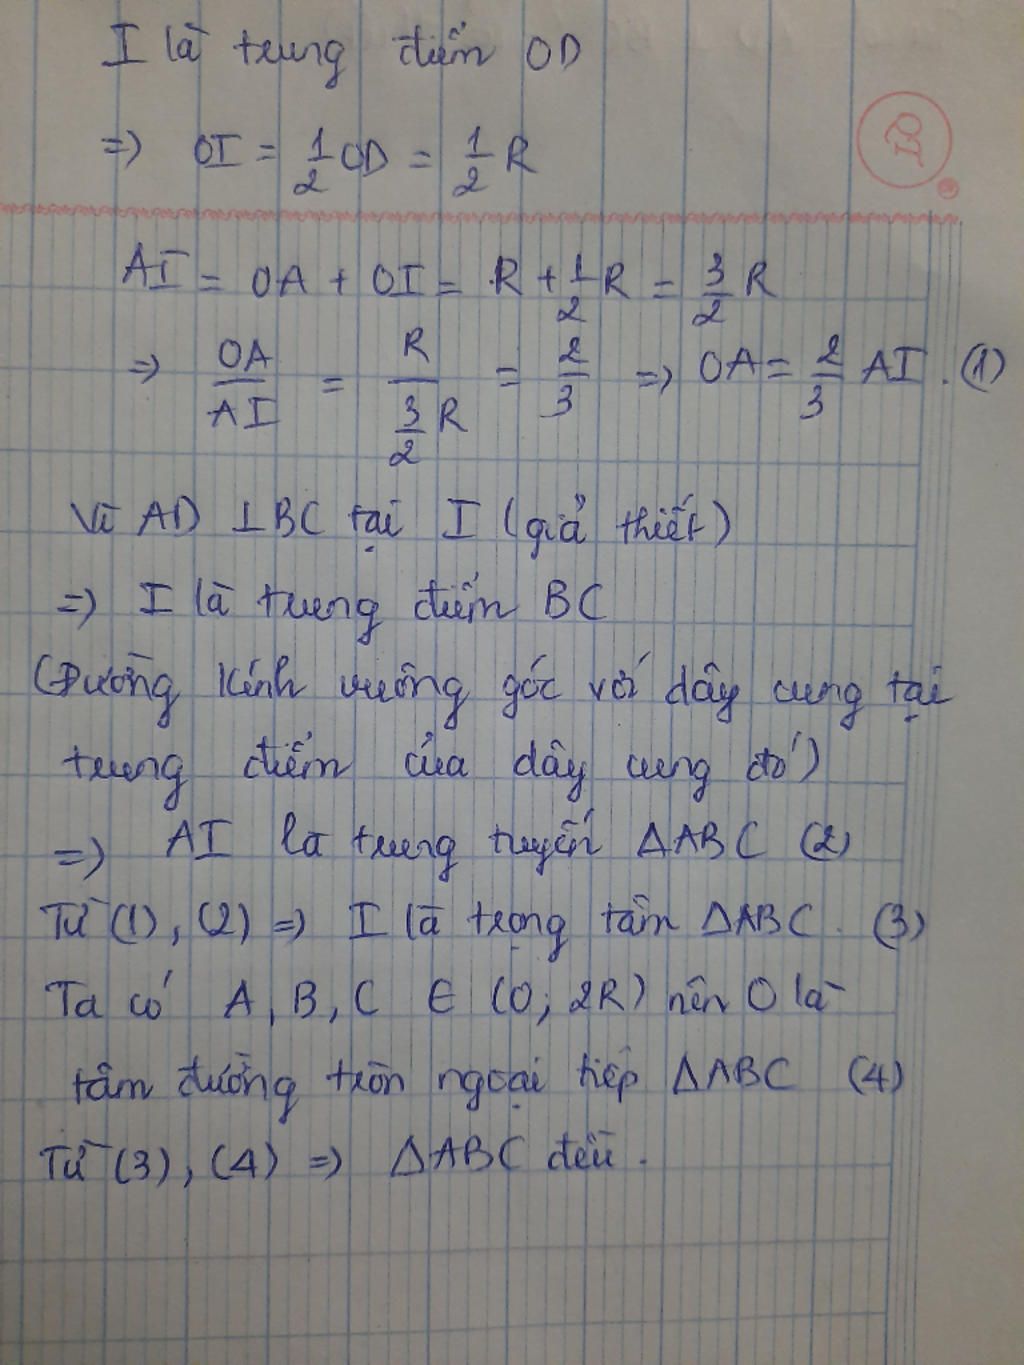 I là trung điểm OD
=> OI = 1/2 OD = 1/2 R
AI = OA + OI = R + 1/2 R = 3/2 R
=> OA/AI = R/(3/2 R) = 2/3 => OA = 2/3 AI. (1)
Vì AD ⊥ BC tại I (giả thiết)
=> I là trung điểm BC
(Đường kính vuông góc với dây cung tại
trung điểm của dây cung đó)
=> AI là trung tuyến ΔABC (2)
Từ (1), (2) => I là trọng tâm ΔABC. (3)
Ta có A, B, C ∈ (O; 2R) nên O là
tâm đường tròn ngoại tiếp ΔABC (4)
Từ (3), (4) => ΔABC đều.